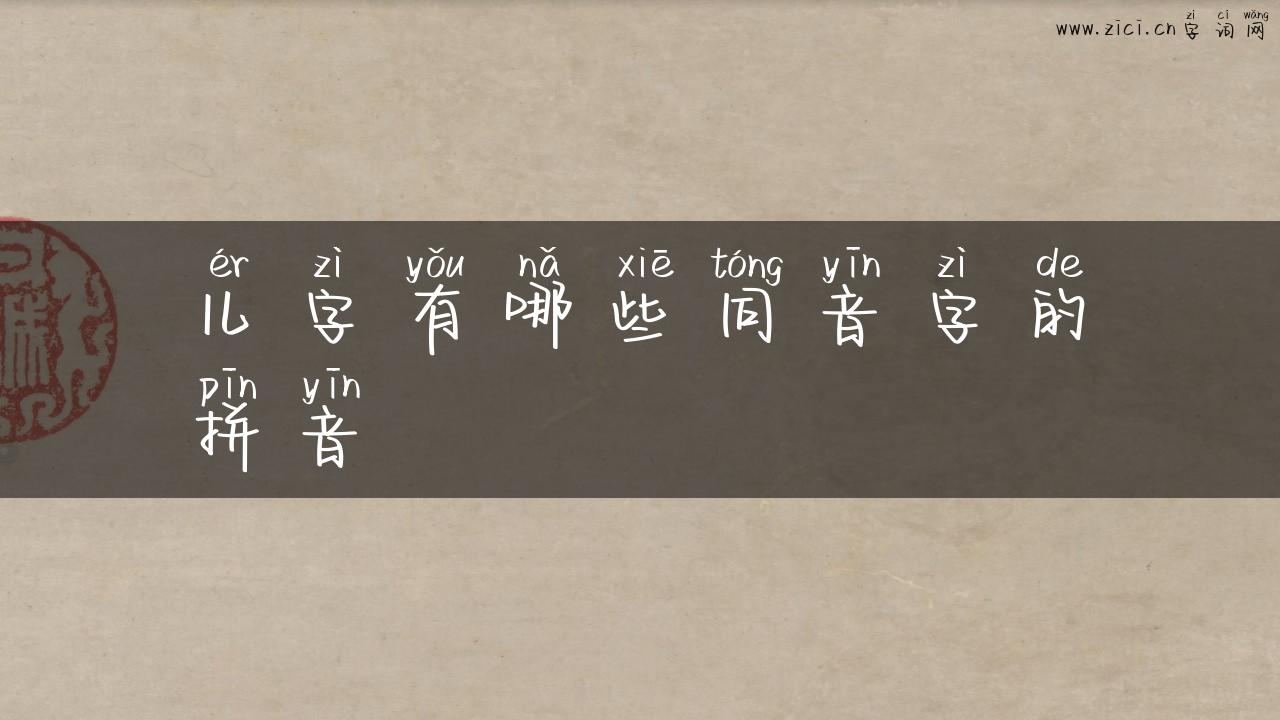 zì cí wǎng
www.zici.cn 字 词 网
ér zì yǒu nǎ xiē tóng yīn zì de
儿 字 有 哪 些 同 音 字 的
pīn yīn
拼 音